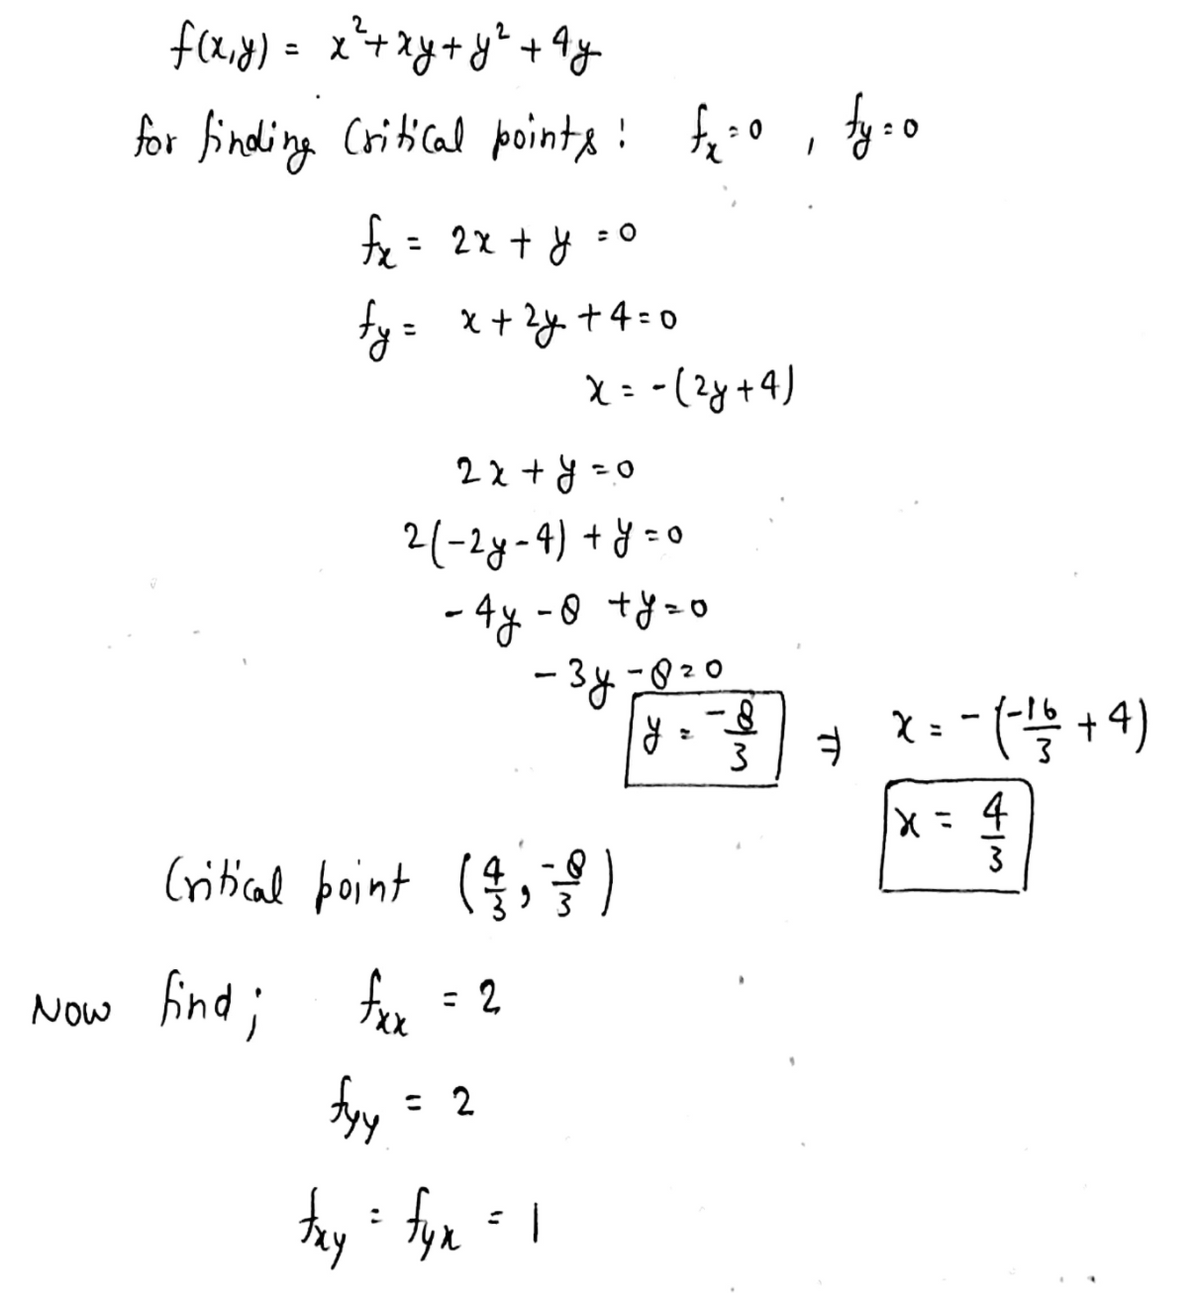 f(x,y) = x²+xy+y²+4y
for finding Critical points: fₓ=0 , f_y=0
fₓ = 2x + y =0
f_y = x + 2y + 4=0
x = -(2y+4)
2x + y =0
2(-2y-4) + y =0
-4y -8 +y=0
-3y -8=0
y = -8/3 ⇒ x = -(-16/3 + 4)
x = 4/3
Critical point (4/3, -8/3)
Now find; fₓₓ = 2
f_yy = 2
f_xy = f_yx = 1